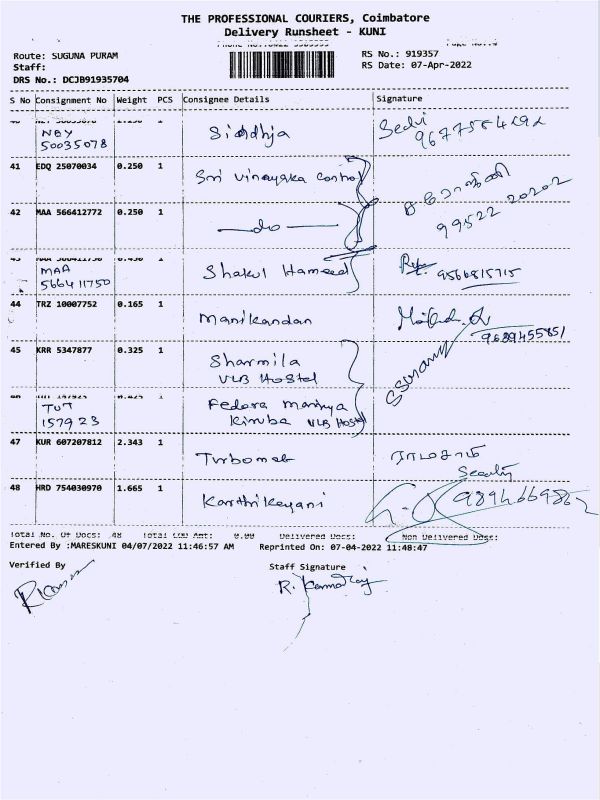 THE PROFESSIONAL COURIERS, Coimbatore
Delivery Runsheet - KUNI
Route: SUGUNA PURAM
RS No.: 919357
Staff:
RS Date: 07-Apr-2022
DRS No.: DCJB91935704
S No Consignment No Weight PCS Consignee Details Signature
NBY
50035078
Siddhja
41 EDQ 25070034 0.250 1 Sri Vinayaka Control
42 MAA 566412772 0.250 1 —do—
99522 20202
MAA
566411750
Shakul Hameed
9566815715
44 TRZ 10007752 0.165 1 Manikandan
9689455851
45 KRR 5347877 0.325 1 Sharmila
VLB Hostel
TUT
157923
Fedora
Kiruba VLB Hostel
47 KUR 607207812 2.343 1 Turbomet
48 HRD 754030970 1.665 1 Karthikeyani
Total No. Of Docs: 48 Total COD Amt: 0.00 Delivered Docs: Non Delivered Docs:
Entered By :MARESKUNI 04/07/2022 11:46:57 AM Reprinted On: 07-04-2022 11:48:47
Verified By
Staff Signature